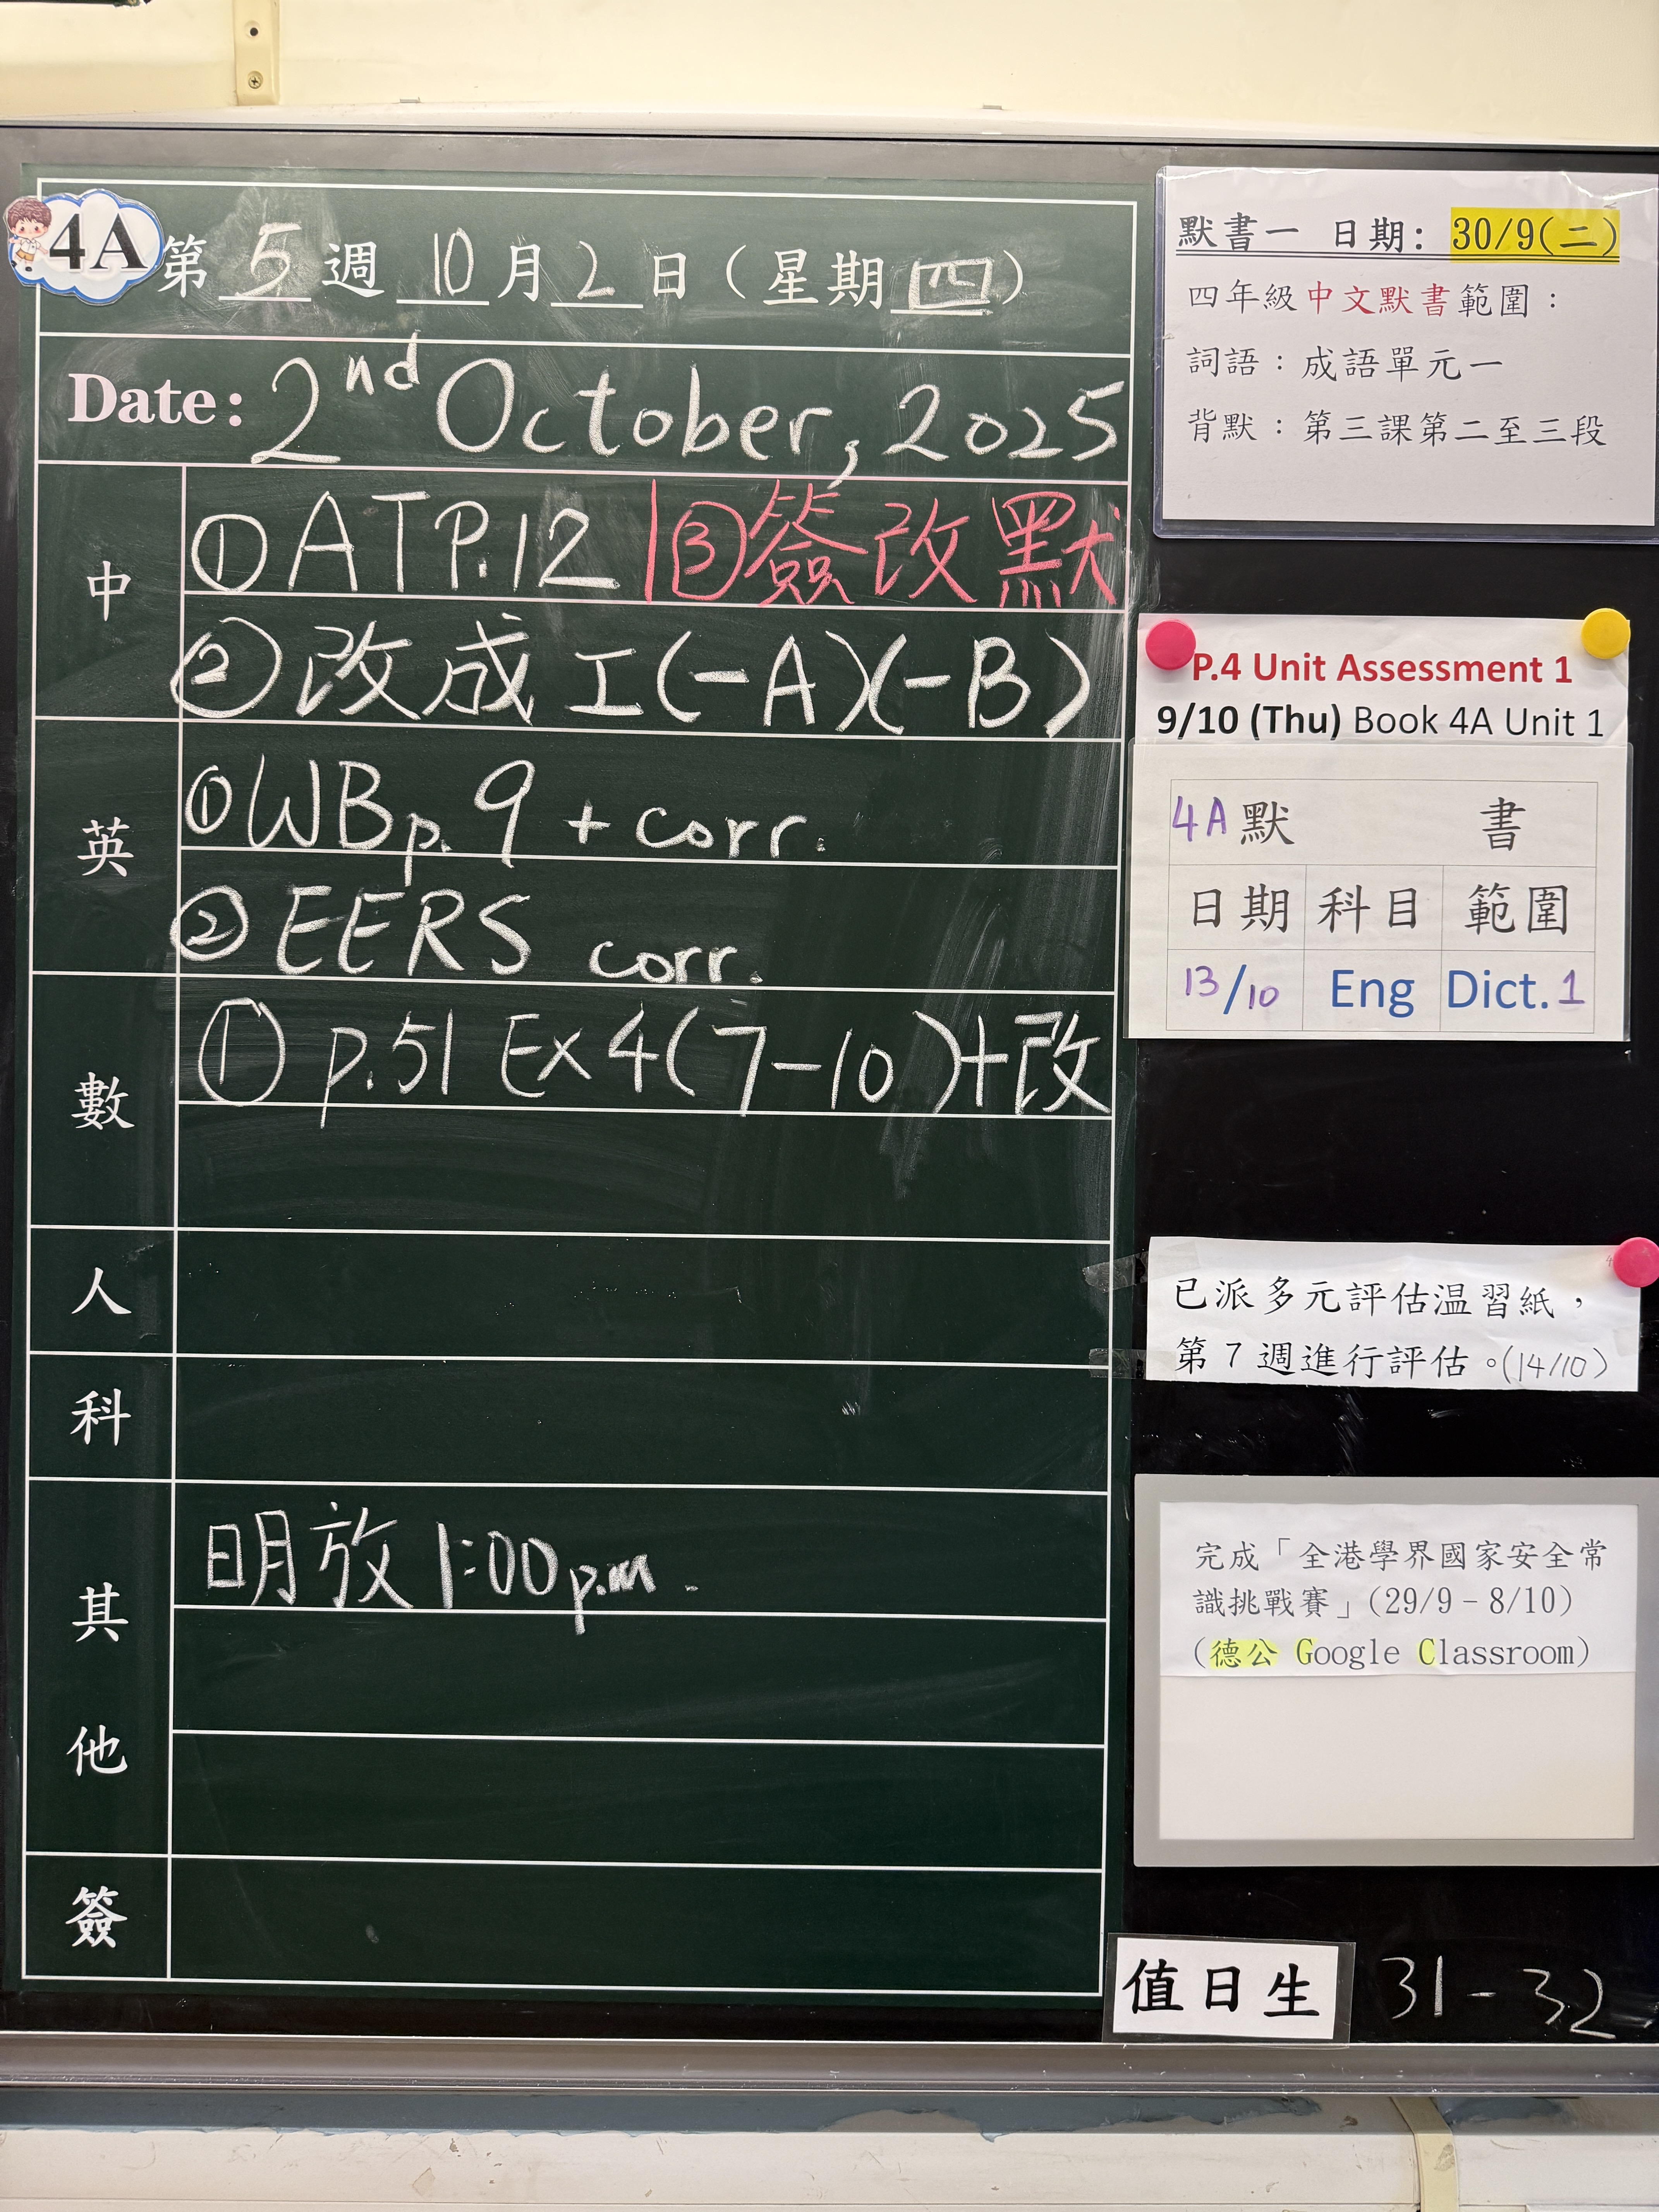 4A 第 5 週 10 月 2 日（星期四）
Date: 2nd October, 2025
中
① ATP.12 | ③簽改默
② 改成工(一A)(一B)
英
① WB p.9 + corr.
② EERS corr.
數
① p.51 Ex 4(7-10)+改
人
科
其他
明放 1:00 p.m.
簽
默書一 日期: 30/9(二)
四年級中文默書範圍：
詞語：成語單元一
背默：第三課第二至三段
P.4 Unit Assessment 1
9/10 (Thu) Book 4A Unit 1
4A 默 書
日期 科目 範圍
13/10 Eng Dict. 1
已派多元評估温習紙，
第 7 週進行評估。(14/10)
完成「全港學界國家安全常
識挑戰賽」(29/9 – 8/10)
(德公 Google Classroom)
值日生 31 - 32